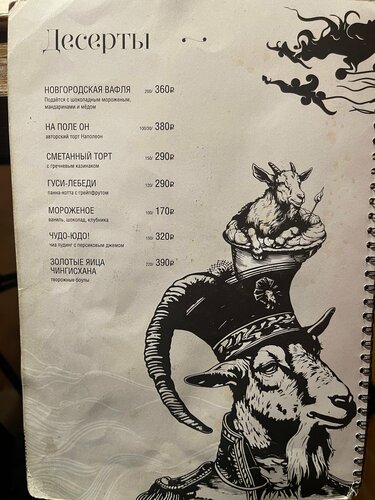 Десерты
НОВГОРОДСКАЯ ВАФЛЯ 200/ 360₽
Подаётся с шоколадным мороженым,
мандаринами и мёдом
НА ПОЛЕ ОН 100/30/ 380₽
авторский торт Наполеон
СМЕТАННЫЙ ТОРТ 150/ 290₽
с гречневым казинаком
ГУСИ-ЛЕБЕДИ 120/ 290₽
панна-котта с грейпфрутом
МОРОЖЕНОЕ 100/ 170₽
ваниль, шоколад, клубника
ЧУДО-ЮДО! 150/ 320₽
чиа пудинг с персиковым джемом
ЗОЛОТЫЕ ЯЙЦА 220/ 390₽
ЧИНГИСХАНА
творожные боулы